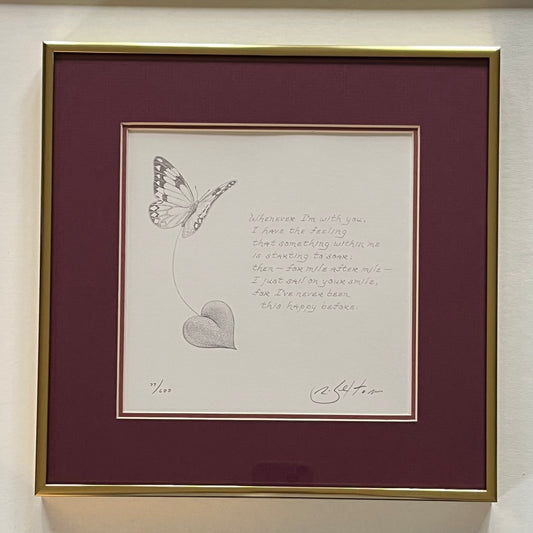 Whenever I'm with you,
I have the feeling
that something within me
is starting to soar;
then — for mile after mile —
I just sail on your smile,
for I've never been
this happy before.